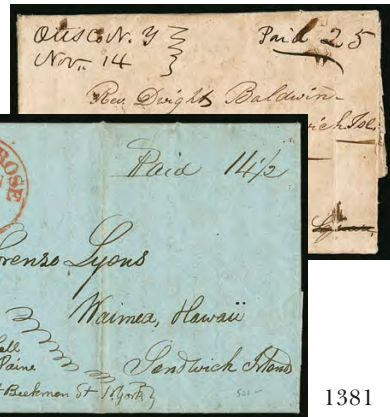 Otisco N. Y
Nov. 14
Paid 25
Rev. Dwight Baldwin
wich Isl.
ROSE
Paid 14 1/2
orenzo Lyons
Waimea, Hawaii
Sandwich Island
all
Paine
Beekman St N York
1381